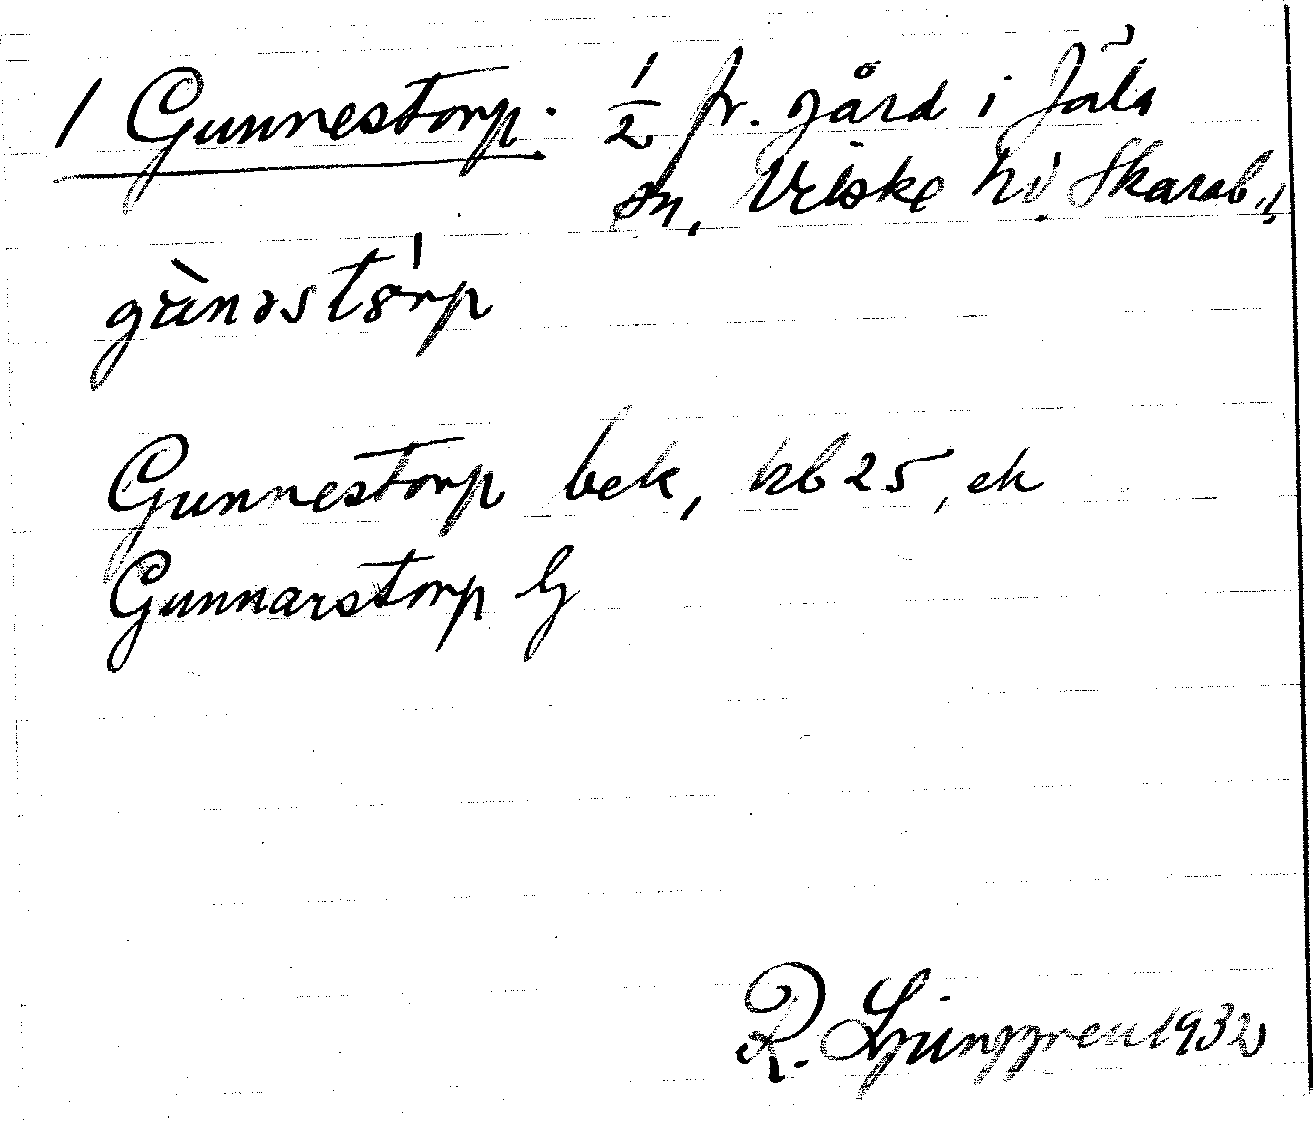 1 Gunnestorp. 1/2 fr. gård i Jäla
sn, Vilske hd. Skarab. l.
gùnəstórp
Gunnestorp bek, kb 25, ek
Gunnarstorp G
R. Ljunggren 1932